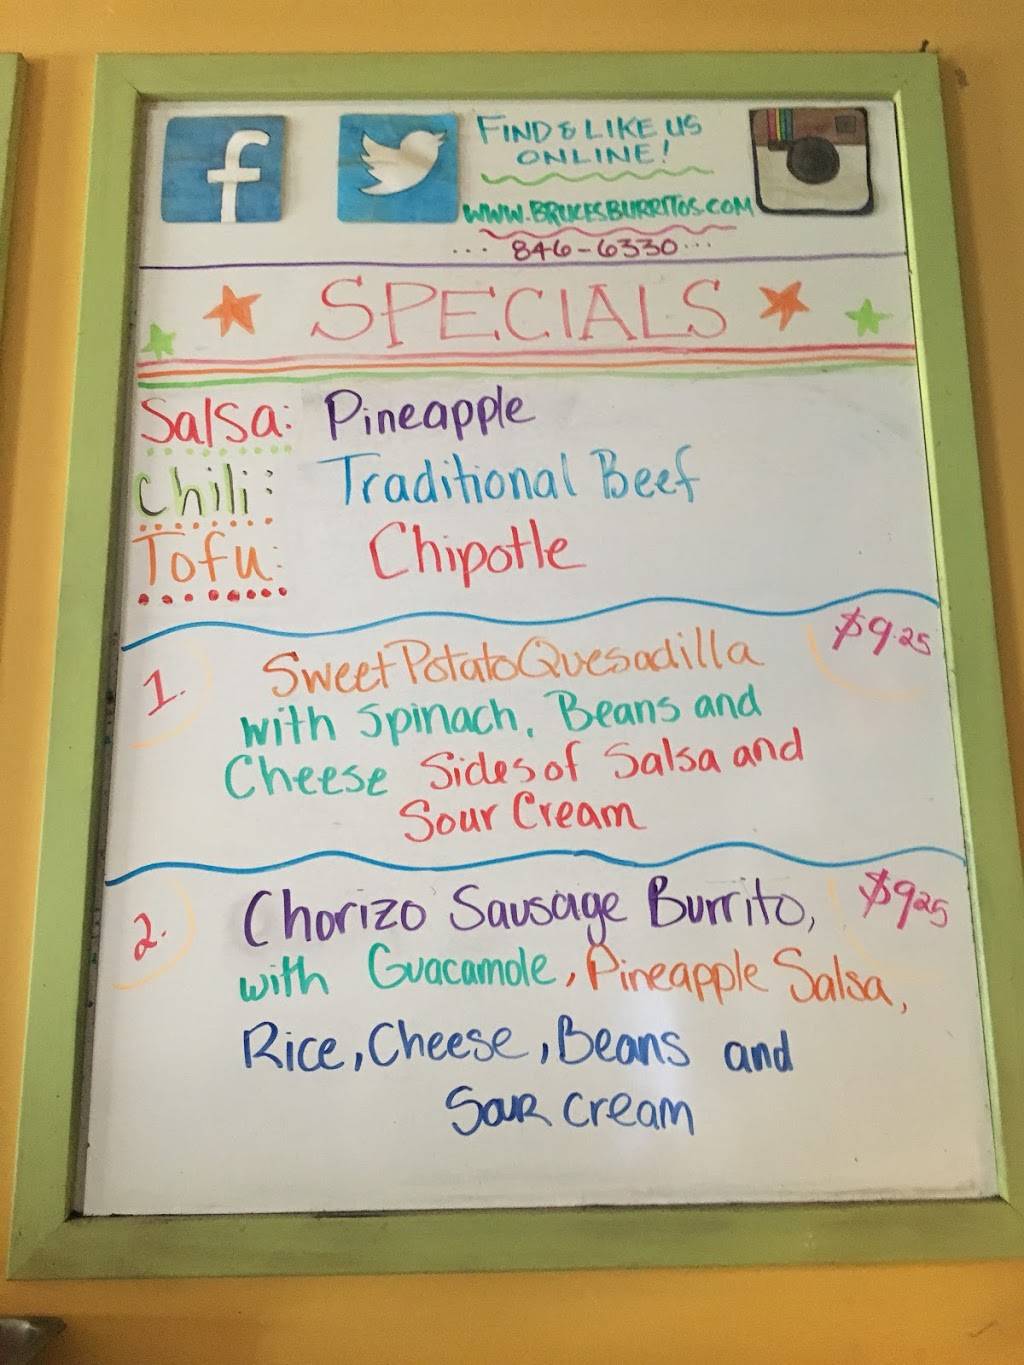 f
FIND & LIKE US
ONLINE!
WWW.BRUCESBURRITOS.COM
... 846-6330 ...
SPECIALS
Salsa: Pineapple
Chili: Traditional Beef
Tofu: Chipotle
$9.25
1. Sweet Potato Quesadilla
with Spinach, Beans and
Cheese Sides of Salsa and
Sour Cream
2. Chorizo Sausage Burrito, $9.25
with Guacamole, Pineapple Salsa,
Rice, Cheese, Beans and
Sour Cream